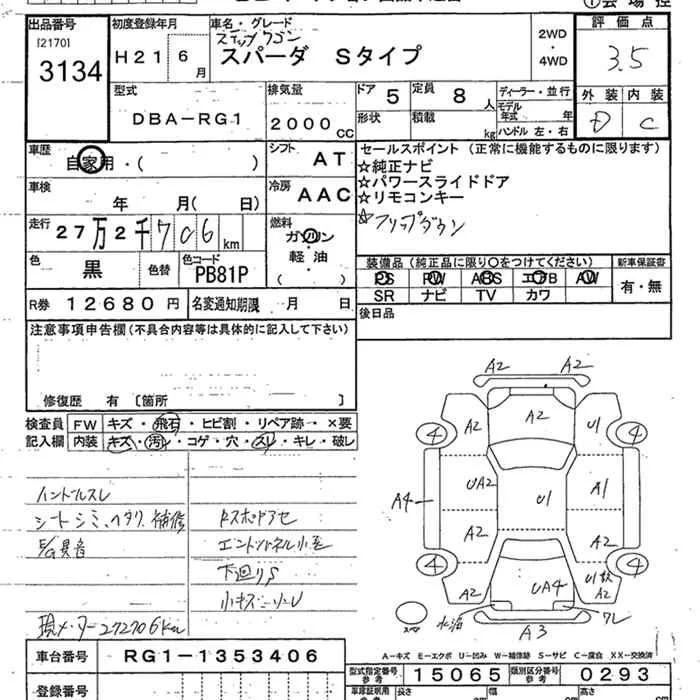 出品番号
[2170]
3134
初度登録年月
H21 6月
車名・グレード
ステップワゴン
スパーダ Sタイプ
2WD
・
4WD
評価点
3.5
外装 内装
D C
型式
DBA-RG1
排気量
2000cc
ドア 5
定員 8人
形状
積載 kg
ディーラー・並行
モデル年式 年
ハンドル 左・右
車歴
自家用・( )
シフト AT
車検
年 月( 日)
冷房 AAC
走行
27万2千706km
燃料
ガソリン
・
軽・油
( )
色
黒
色替
色コード
PB81P
R券 12680円
名変通知期限 月 日
セールスポイント(正常に機能するものに限ります)
☆純正ナビ
☆パワースライドドア
☆リモコンキー
☆フリップダウン
装備品(純正品に限り○をつけてください)
新車保証書
PS PW ABS エアB AW
有・無
SR ナビ TV カワ
後日品
注意事項申告欄(不具合内容等は具体的に記入して下さい)
修復歴 有 [箇所 ]
検査員 FW キズ・飛石・ヒビ割・リペア跡・×要
記入欄 内装 キズ・汚レ・コゲ・穴・スレ・キレ・破レ
ハンドルスレ
シートシミ、ヘタリ、補修
E/G異音
現メーター272706Km
下廻りS
小キズ
A2 A2
A2
④ A2 U1 ④
UA2 U1 A1
A4
A2 A2
④ ④
A2 UA4 A2
A3
A-キズ M-エクボ U-凹み W-補修跡 S-サビ C-腐食 XX-交換済
車台番号 RG1-1353406
登録番号
型式指定番号 参考 15065
類別区分番号 参考 0293
車庫証明用 参考
長さ
幅
高さ